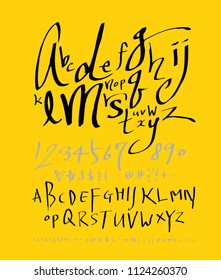 Abcdefghij
klmnopqrstuvw
xyz
1234567890
ABCDEFGHIJKLMN
OPQRSTUVWXYZ
www.shutterstock.com · 1124260370